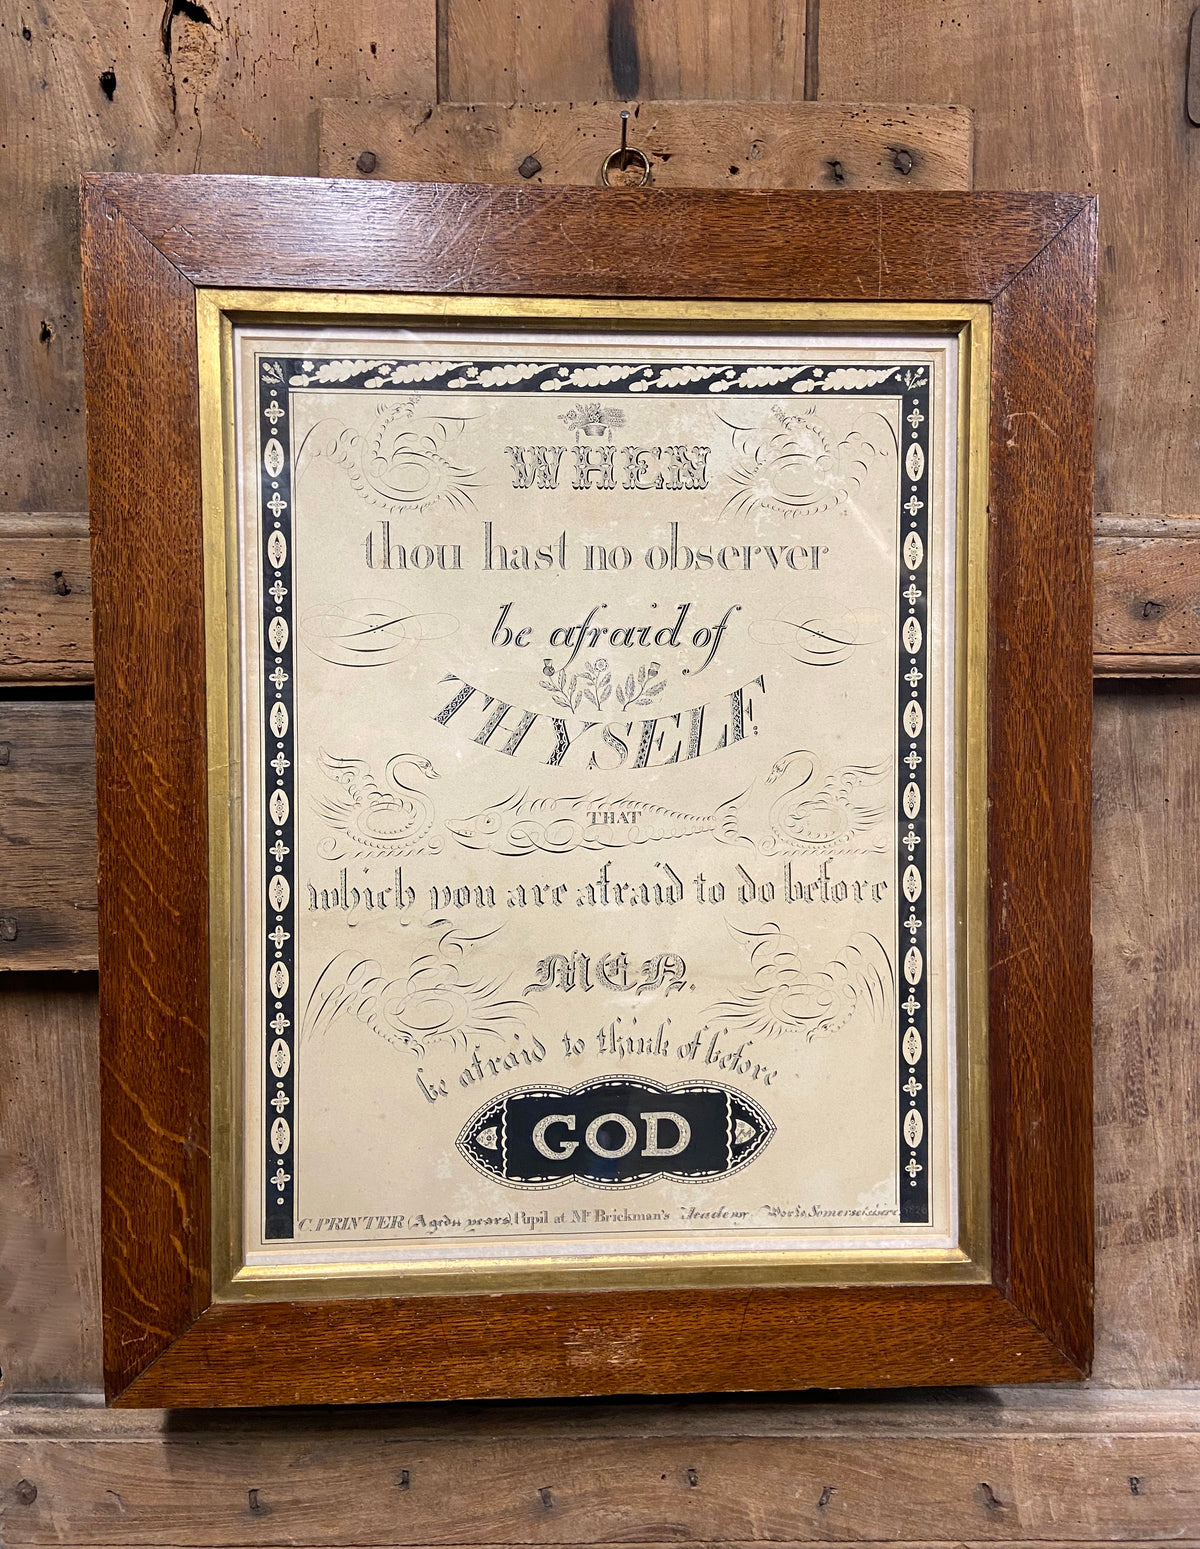 WHEN
thou hast no observer
be afraid of
THYSELF:
THAT
which you are afraid to do before
MEN.
be afraid to think of before
GOD
C. PRINTER (Aged 14 years) Pupil at Mr Brickman's Academy Somersetshire